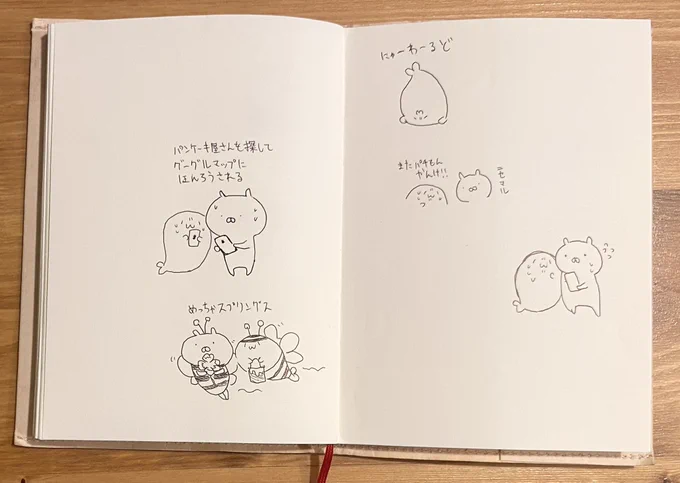 パンケーキ屋さんを探して
グーグルマップに
ほんろうされる
めっちゃスプリングス
にゃーわーるど
またパチもん
やんけ!!
ニセマル